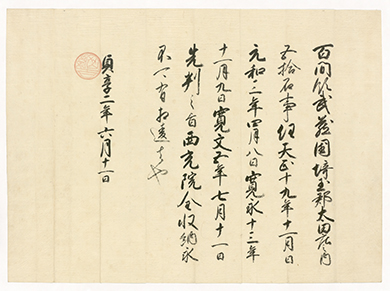 百間領武蔵国埼玉郡太田庄之内
五拾石事任天正十九年十一月日
元和三年四月八日寛永十三年
十一月九日寛文五年七月十一日
先判之旨西光院全収納永
不可有相違者也
貞享二年六月十一日